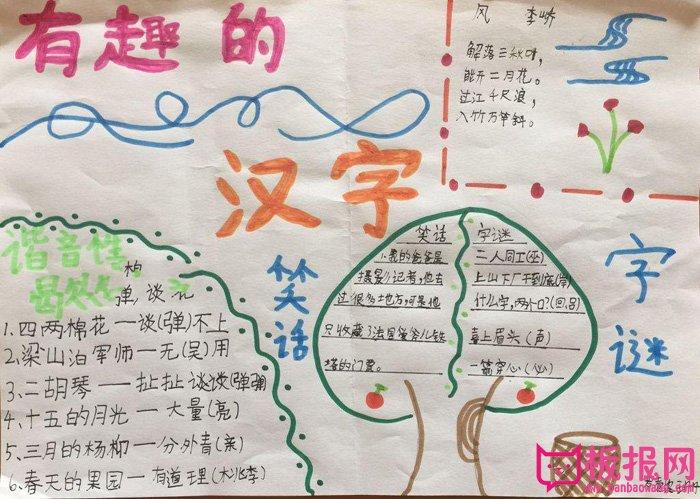 有趣的
汉字
风 李峤
解落三秋叶,
能开二月花。
过江千尺浪,
入竹万竿斜。
谐音性
1.四两棉花—谈(弹)不上
2.梁山泊军师—无(吴)用
3.二胡琴—扯扯谈谈(弹弹)
4.十五的月光—大量(亮)
5.三月的杨柳—分外青(亲)
6.春天的果园—有道理(桃李)
笑话
笑话
1.我的爸爸是
摄影记者,他去
过很多地方,可是他
只收藏了法国埃菲儿铁
塔的门票。
字谜
三人同工(坐)
上山下厂干到底(岸)
什么字,两个口?(回.吕)
喜上眉头(声)
一箭穿心(必)
字谜
板报网
www.banbaowang.com